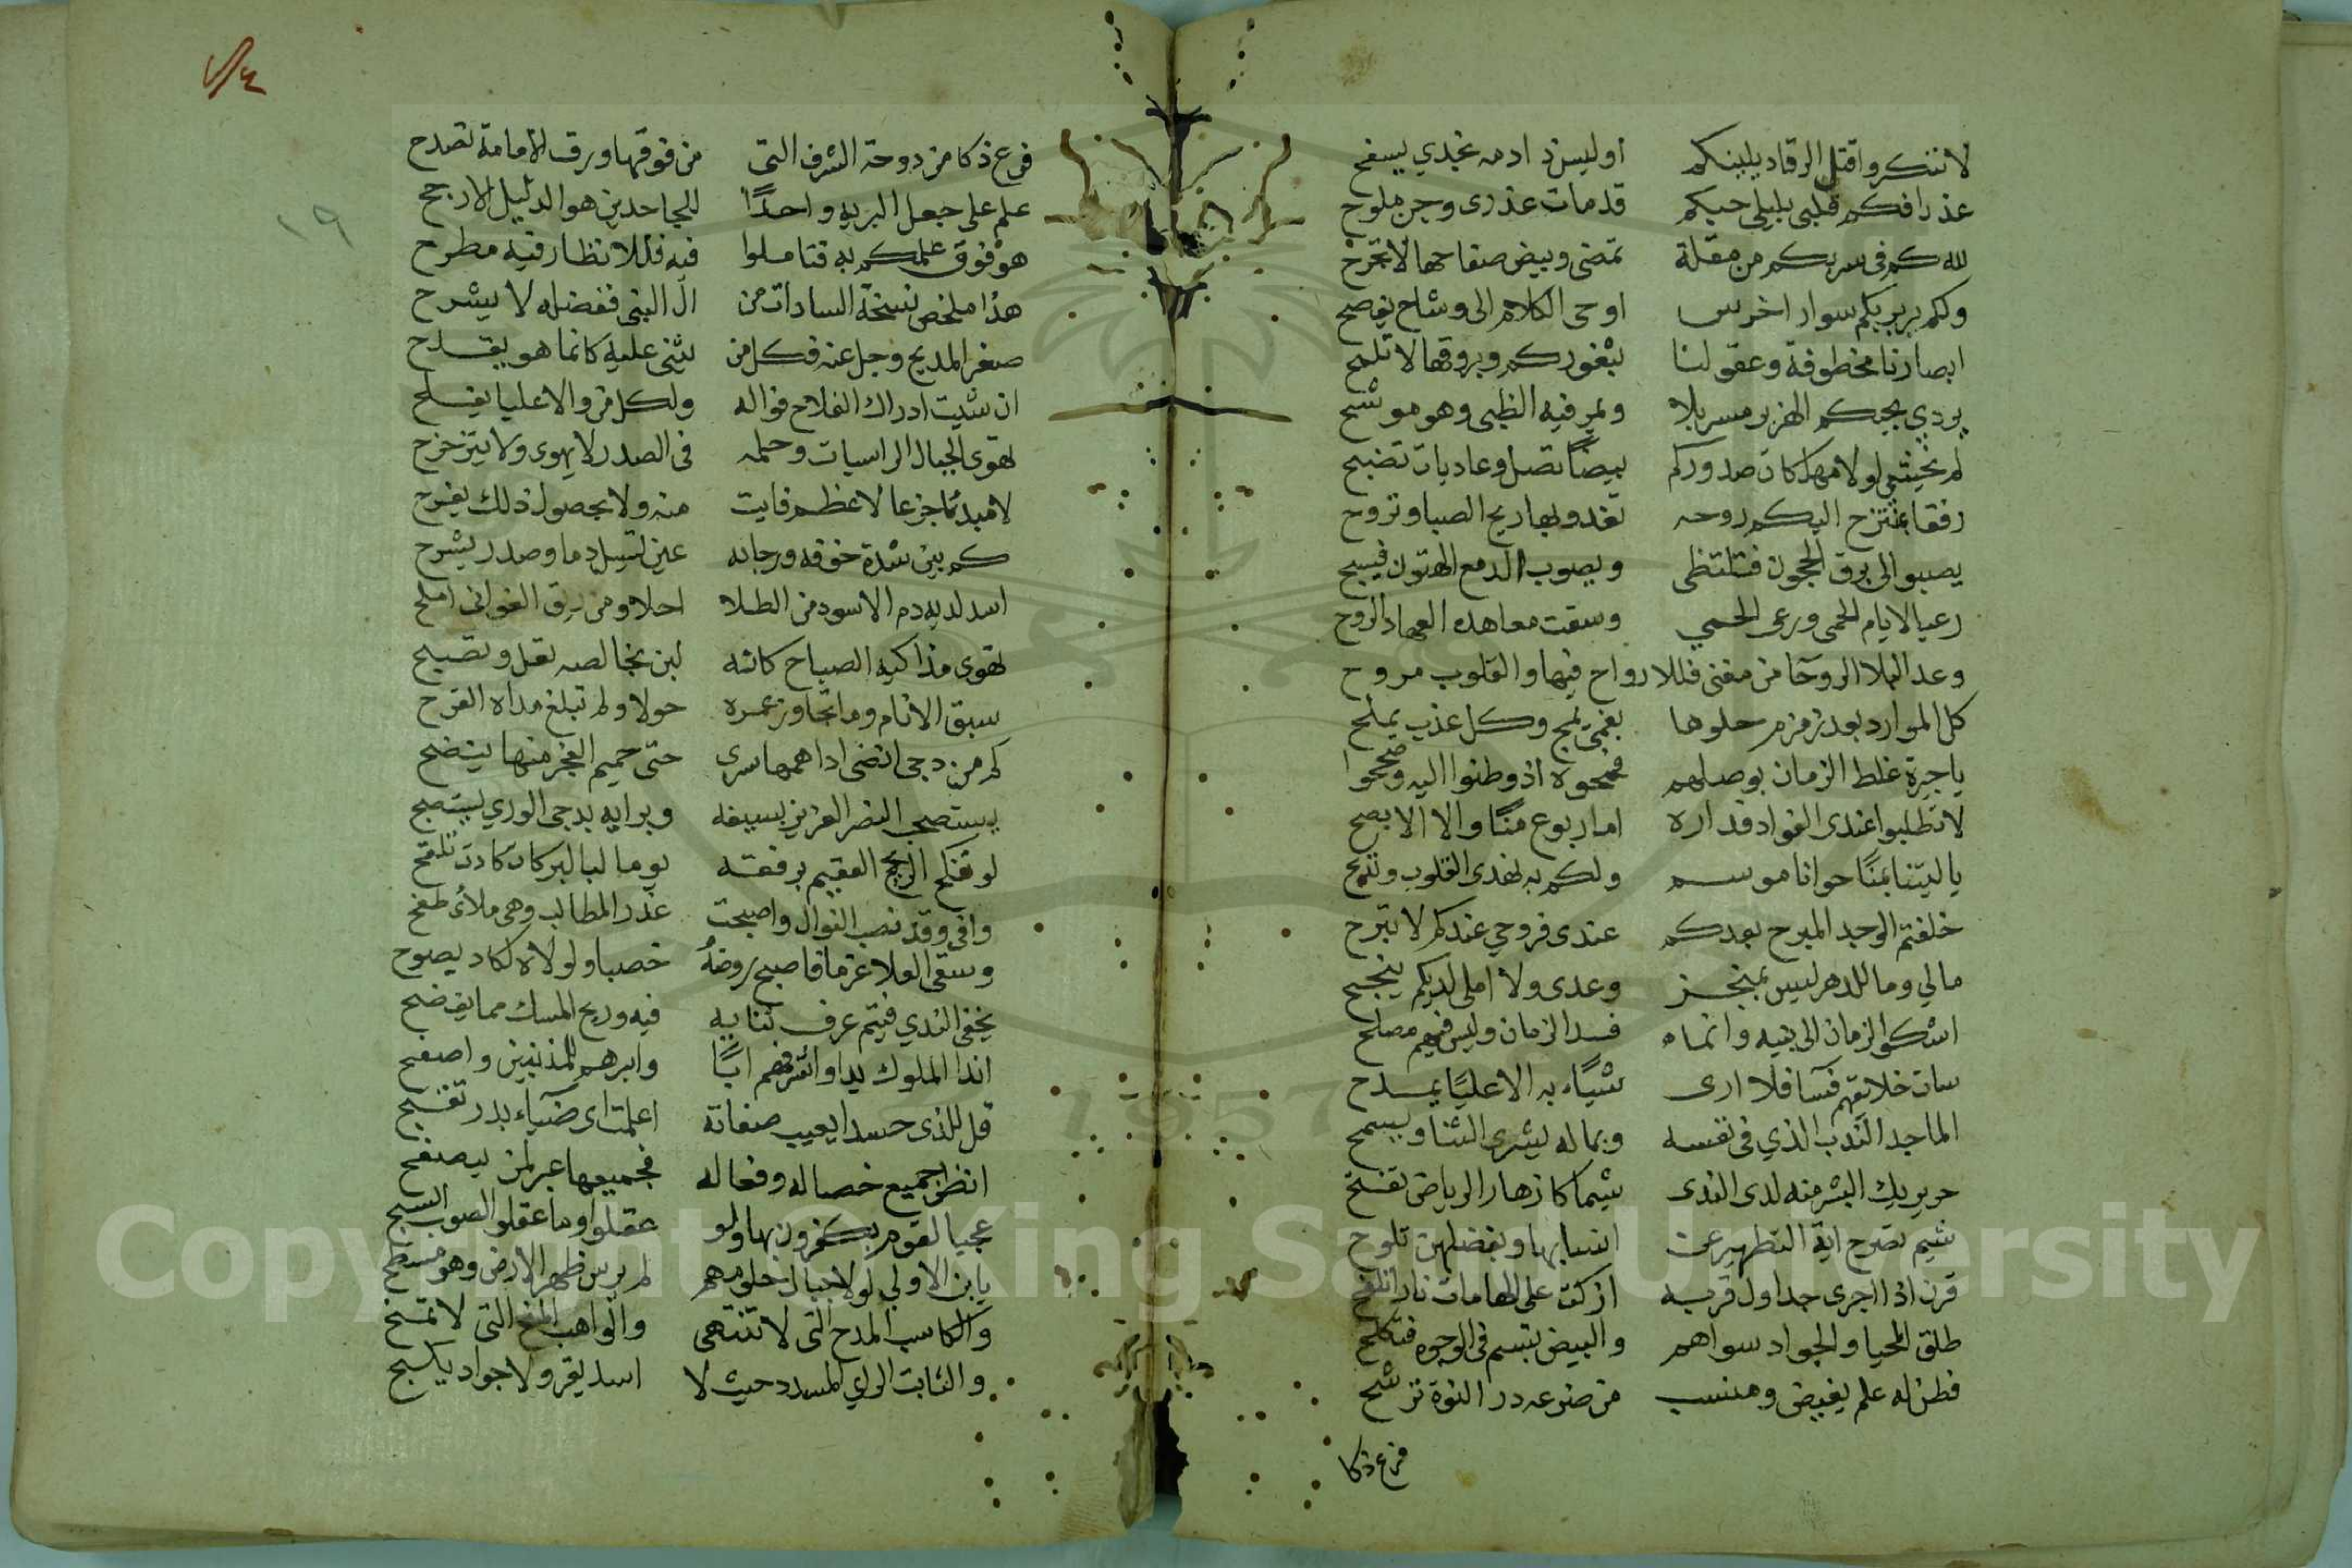 لا تنكروا قتل الرقاد ببينكم اوليس ادمه بخدي يسفح
عذرا فكم قلبي بليلى حيكم قد مات عذرى وجن ملوح
لله كم فى سربكم من مقلة تمضى وبيض صفاحها لا تجرح
وكم بربربكم سوار اخرس اوحى الكلام الى وشاح يفصح
ابصارنا مخطوفة وعقولنا بثغوركم وبروقها لا تلمح
يردي بحبكم الهزبر مسربلا ويمر فيه الظبى وهو موشح
لولا مهاكم صدوركم بيضا تصل وعاديات تضبح
رفقا بمنتزح اليكم روحه تغدو بها ريح الصبا وتروح
يصبو الى برق الحجون فتلتظى ويصوب الدمع الهتون فيسبح
رعيا لايام الحمى ورعى الحمي وسقت معاهده العهاد الروح
وعدا البلا الروحا من مغنى فللارواح فيها والقلوب مروح
كل الموارد بعد زمزم حلوها بفمى يمج وكل عذب يملح
يا جيرة غلط الزمان بوصلهم فمحوه اذ وطنوا اليه وصححوا
لا تطلبوا عندى الفواد فداره اما ربوع منًا والا الابطح
يا ليتنا بمنًا حوانا موسم ولكم به تهدى القلوب وتذبح
خلفتم الوجد المبرح بعدكم عندى فروحي عندكم لا تبرح
مالي وما للدهر ليس بمنجز وعدى ولا املى لديكم ينجح
اشكو الزمان الى بنيه وانما فسد الزمان وليس فيهم مصلح
سات خلائقهم فسآ فلا ارى شيًاء به الا عليًا يمدح
الماجد الندب الذي فى نفسه وبماله يشرى الثنا ويسمح
حر يريك البشر منه لدى الندى شيما كازهار الرياض تفتح
شيم تصرح اية التطهير عن انسابها وبفضلهن تلوح
قرن اذا اجرى جداول قربه اذكت على الهامات نارا تلفح
طلق المحيا والجواد سواهم والبيض تبسم فى الوجوه فتكلح
فطن له علم يفيض ومنسب من ضرعه در النوة ترشح
فرع ذكا
١٩
فرع ذكا من دوحة الشرف التى من فوقها ورق الامامة تصدح
علم على جعل البريه واحدًا للجاحدين هو الدليل الارجح
هو فوق علمكم به فتاملوا فيه فللانظار فيه مطرح
هذا ملخص نسخة السادات من ال النبى ففضله لا يشرح
صغر المديح وجل عنه فكل من يثنى عليه كانما هو يقدح
ان شيت ادراك الفلاح فواله ولكل من والا عليا يفلح
تهوى الجبال الراسيات وحلمه فى الصدر لا يهوى ولا يتزحزح
لا مبديًا جزعا لاعظم فايت منه ولا بحصول ذلك يفرح
كم بين شدة خوفه ورجايه عين تسيل دما وصدر يشرح
اسد لديه دم الاسود من الطلا احلا ومن ريق الغوانى املح
تهوى مذاكيه الصباح كانه لبن بخالصه تعل وتصبح
سبق الانام وما تجاوز عمره حولا ولم تبلغ مداه القرح
كم من دجى انضى اداهمها سرى حتى حميم الفجر منها ينضح
يستصحب النصر العزيز بسيفه وبرايه بدجى الوري يستصبح
لو تنكح الريح العقيم برفقه يوما لبالبركات كادت تلقح
وافى وقد نصب النوال واصبحت غدر المطالب وهى ملائ طفح
وسقى العلا عزما فاصبح روضهُ خصبا ولولاه لكاد يصوح
يخفى الندي فيتم عرف ثنايه فيه وريح المسك مما يفضح
اندا الملوك يدا واشرفهم ابًا وابرهم للمذنبين واصفح
قل للذى حسدا يعيب صفاتة اعلمت اى ضياء بدر تقبح
انظر جميع خصاله وفعاله فجميعها عبر لمن يتصفح
عجبا لقوم يكفرون بها ولو عقلوا وما عقلوا الصوب السبح
يابن الاولي لولا جبال حلومهم لم يرس ظهر الارض وهو مسطح
والكاسب المدح التى لا تنتهى والواهب المنح التى لا تمنح
والثابت الراي المسدد حيث لا اسد يقر ولا جواد يكبح
Copyright © King Saud University
1957